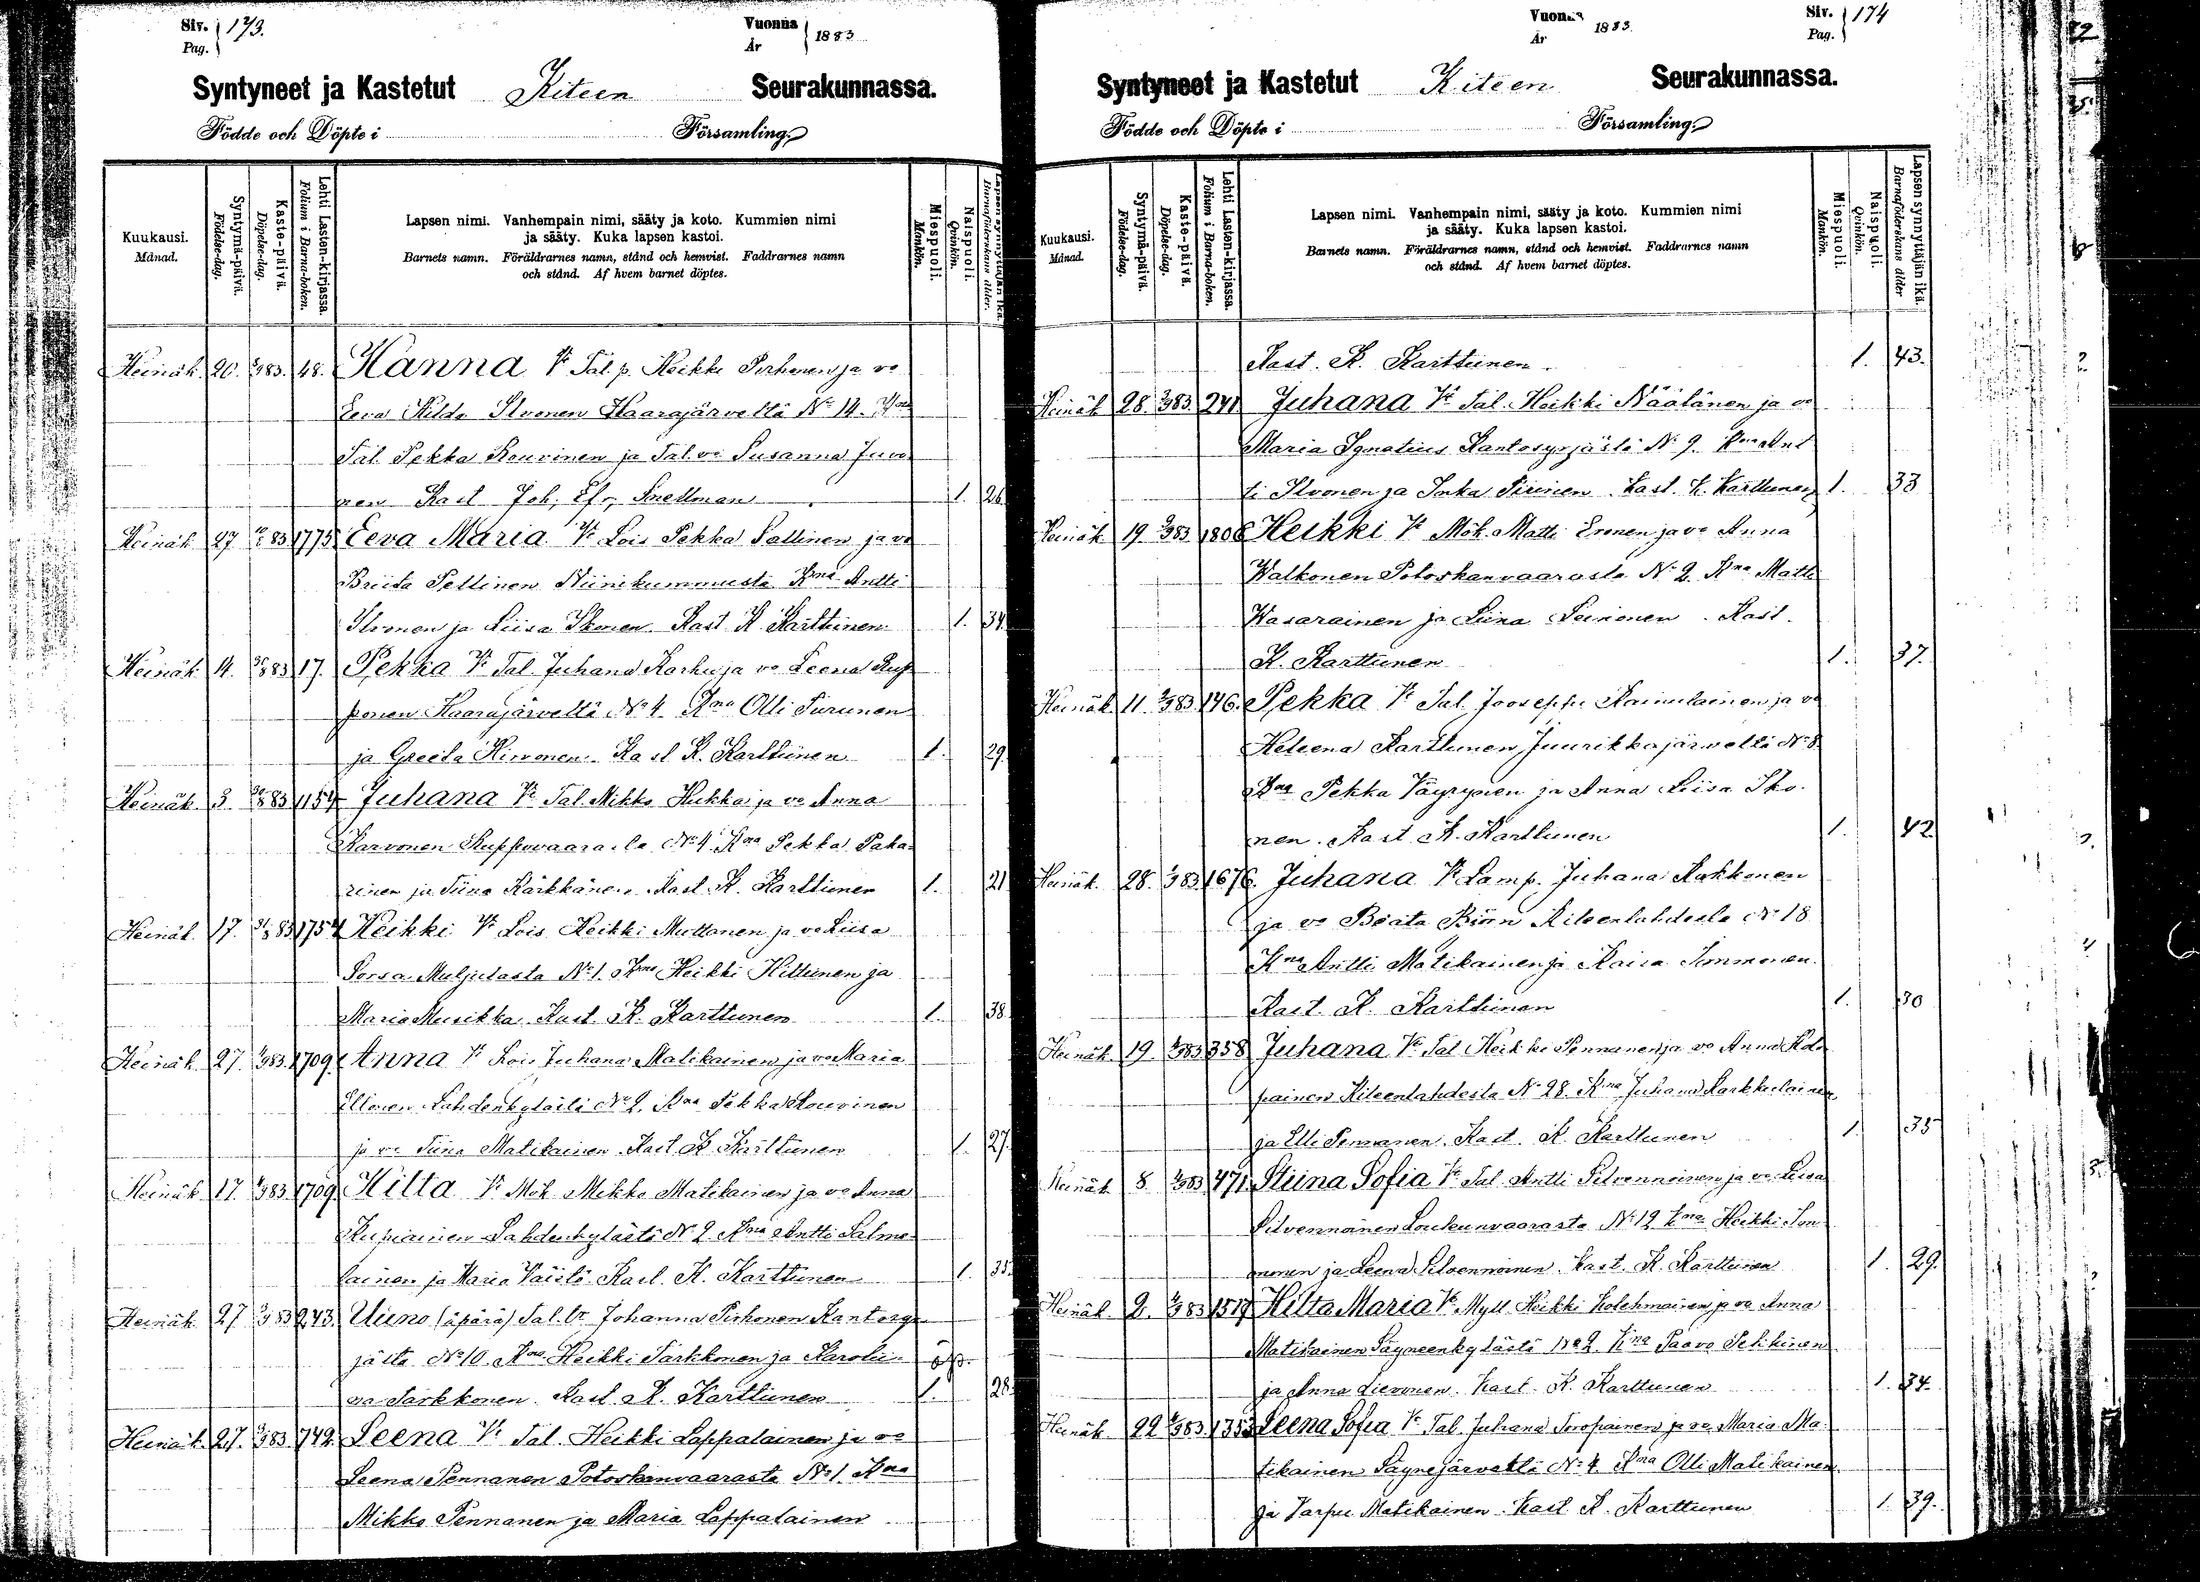 Siv. 173.
Pag.
Vuonna 1883
År
Syntyneet ja Kastetut Kiteen Seurakunnassa.
Födde och Döpte i Församling.
Kuukausi.
Månad.
Syntymä-päivä.
Födelse-dag.
Kaste-päivä.
Döpelse-dag.
Lehti Lasten-kirjassa.
Folium i Barna-boken.
Lapsen nimi. Vanhempain nimi, sääty ja koto. Kummien nimi
ja sääty. Kuka lapsen kastoi.
Barnets namn. Föräldrarnes namn, stånd och hemvist. Faddrarnes namn
och stånd. Af hvem barnet döptes.
Miespuoli.
Mankön.
Naispuoli.
Qvinkön.
Lapsen synnyttäjän ikä.
Barnaföderskans ålder.
Heinäk. 20. 83. 48. Hanna Vt Tal. p. Heikki Pirhonen ja vo
Eeva Hilda Ilvonen Haarajärveltä No 14. Kna
Tal. Pekka Rouvinen ja Tal. vo Susanna Juvo
nen Kast Joh. Efr. Snellman 1. 26
Heinäk 27 83 1775 Eeva Maria Vt Lois Pekka Sallinen ja vo
Briita Peltinen Niinikummusta Kna Antti
Ilvonen ja Liisa Ikonen. Kast K Karttunen 1. 34
Heinäk 14. 83 17. Pekka Vt Tal. Juhana Karhu ja vo Leena Rup
ponen Haarajärveltä No 4. Kna Olli Turunen
ja Greeta Hirvonen. Kast K. Karttunen 1. 29.
Heinäk. 3. 83 1154 Juhana Vt Tal. Mikko Hukka ja vo Anna
Karvonen Ruppovaarasta No 4 Kna Pekka Paka
rinen ja Tiina Kärkkänen. Kast. K. Karttunen 1. 21
Heinäk. 17. 83 1754 Heikki Vt Lois Heikki Muttonen ja vo Liisa
Sorsa Muljulasta No 1. Kna Heikki Hiltunen ja
Maria Musikka. Kast. K. Karttunen 1. 38.
Heinäk. 27. 83. 1709. Anna Vt Lois Juhana Matikainen ja vo Maria
Ellonen Lahdenkylästä No 2. Kna Pekka Rouvinen
ja vo Tiina Matikainen. Kast. K. Karttunen 1. 27.
Heinäk 17. 83. 1709. Hilta Vt Mök Mikko Matikainen ja vo Anna
Kupiainen Lahdenkylästä No 2 Kna Antti Salme
lainen ja Maria Väistö. Kast. K. Karttunen 1. 35.
Heinäk. 27 83 243. Uuno (äpärä) Tal. tr Johanna Pirhonen Kantosyr
jältä No 10. Kna Heikki Tarkkonen ja Karolii äp.
na Tarkkonen. Kast. K. Karttunen 1. 28.
Heinäk. 27. 83. 742. Leena Vt Tal. Heikki Lappalainen ja vo
Leena Pennanen Potoskanvaarasta No 1. Kna
Mikko Pennanen ja Maria Lappalainen
Siv. 174
Pag.
Vuonna 1883.
År
Syntyneet ja Kastetut Kiteen Seurakunnassa.
Födde och Döpte i Församling.
Kuukausi.
Månad.
Syntymä-päivä.
Födelse-dag.
Kaste-päivä.
Döpelse-dag.
Lehti Lasten-kirjassa.
Folium i Barna-boken.
Lapsen nimi. Vanhempain nimi, sääty ja koto. Kummien nimi
ja sääty. Kuka lapsen kastoi.
Barnets namn. Föräldrarnes namn, stånd och hemvist. Faddrarnes namn
och stånd. Af hvem barnet döptes.
Miespuoli.
Mankön.
Naispuoli.
Qvinkön.
Lapsen synnyttäjän ikä.
Barnaföderskans ålder
Kast. K. Karttunen. 1. 43.
Heinäk 28. 83. 241 Juhana Vt Tal. Heikki Näälänen ja vo
Maria Ignatius Kantosyrjästä No 9. Kna Ant
ti Ilvonen ja Inka Piirinen. Kast. K. Karttunen 1. 33
Heinäk 19. 83. 1808 Heikki Vt Mök. Matti Eronen ja vo Anna
Walkonen Potoskanvaarasta No 2. Kna Matti
Wasarainen ja Liina Leinonen. Kast.
K. Karttunen 1. 37.
Heinäk. 11. 83. 146. Pekka Vt Tal. Jooseppi Kainulainen ja vo
Heleena Karttunen Juurikkajärveltä No 8.
Kna Pekka Väyrynen ja Anna Liisa Iko
nen. Kast. K. Karttunen 1. 42
Heinäk. 28. 83. 1676. Juhana Vt Lamp. Juhana Kakkonen
ja vo Beata Björn Kiteenlahdesta No 18
Kna Antti Matikainen ja Kaisa Immonen.
Kast. K. Karttunen 1. 30
Heinäk 19. 83 358 Juhana Vt Tal Heikki Pennanen ja vo Anna Kol
painen Kiteenlahdesta No 28. Kna Juhana Karkkulainen
ja Elli Pennanen. Kast. K. Karttunen 1. 35
Heinäk 8. 83 471. Stiina Sofia Vt Tal. Antti Silvennoinen ja vo Liisa
Silvennoinen Loukunvaarasta No 12 Kna Heikki Im
monen ja Leena Silvennoinen. Kast. K. Karttunen 1. 29.
Heinäk. 2. 83 1517 Hilta Maria Vt Myll. Heikki Kolehmainen ja vo Anna
Matikainen Säyneenkylästä No 2 Kna Paavo Pehkinen
ja Anna Lievonen. Kast. K. Karttunen 1. 34.
Heinäk 22 83. 1353 Leena Sofia Vt Tal. Juhana Toropainen ja vo Maria Ma
tikainen Säynejärveltä No 4. Kna Olli Matikainen
ja Varpu Matikainen. Kast K. Karttunen 1. 39.